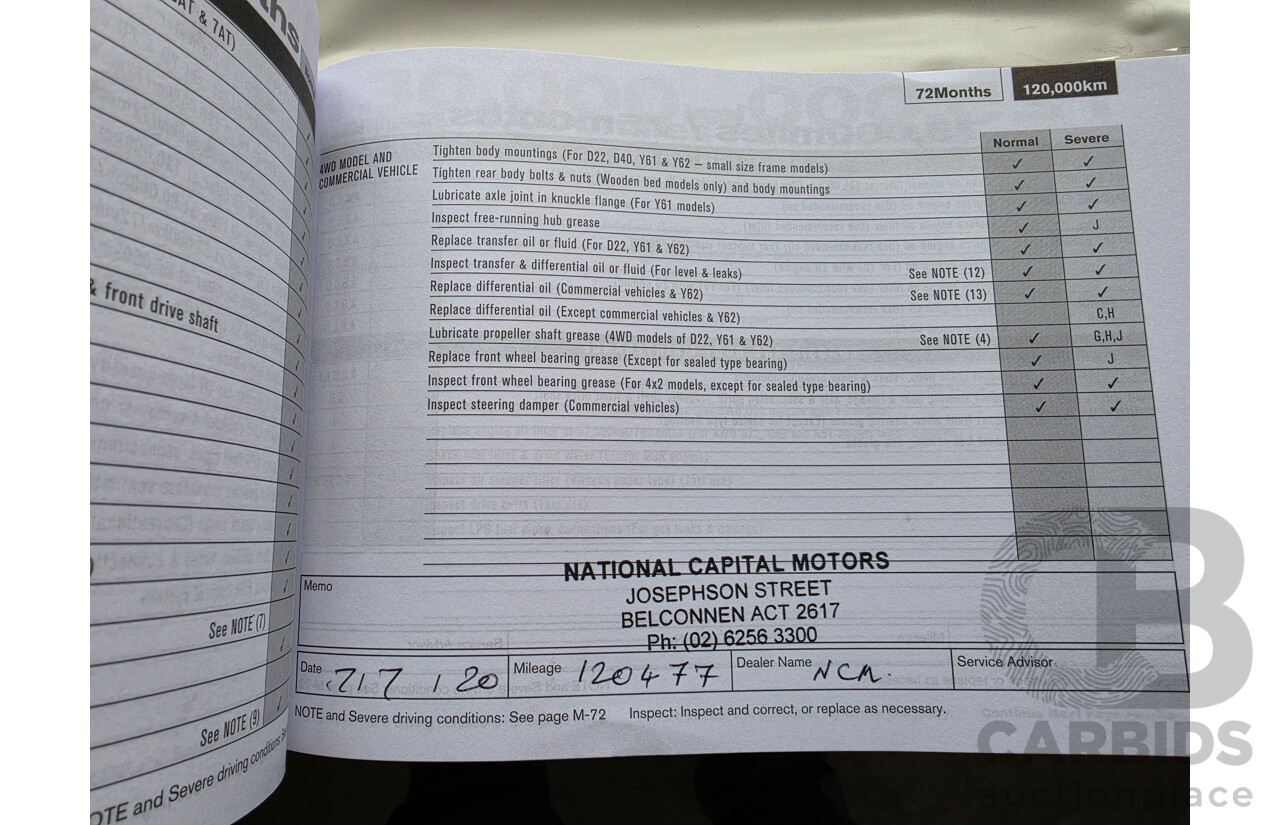 6AT & 7AT)
& front drive shaft
See NOTE (7)
See NOTE (9)
NOTE and Severe driving conditions: Se
72Months 120,000km
Normal Severe
4WD MODEL AND
COMMERCIAL VEHICLE
Tighten body mountings (For D22, D40, Y61 & Y62 – small size frame models) ✓ ✓
Tighten rear body bolts & nuts (Wooden bed models only) and body mountings ✓ ✓
Lubricate axle joint in knuckle flange (For Y61 models) ✓ ✓
Inspect free-running hub grease ✓ J
Replace transfer oil or fluid (For D22, Y61 & Y62) ✓ ✓
Inspect transfer & differential oil or fluid (For level & leaks) See NOTE (12) ✓ ✓
Replace differential oil (Commercial vehicles & Y62) See NOTE (13) ✓ ✓
Replace differential oil (Except commercial vehicles & Y62) C,H
Lubricate propeller shaft grease (4WD models of D22, Y61 & Y62) See NOTE (4) ✓ G,H,J
Replace front wheel bearing grease (Except for sealed type bearing) ✓ J
Inspect front wheel bearing grease (For 4x2 models, except for sealed type bearing) ✓ ✓
Inspect steering damper (Commercial vehicles) ✓ ✓
Memo
NATIONAL CAPITAL MOTORS
JOSEPHSON STREET
BELCONNEN ACT 2617
Ph: (02) 6256 3300
Date 217 / 20 Mileage 120477 Dealer Name NCM. Service Advisor
NOTE and Severe driving conditions: See page M-72 Inspect: Inspect and correct, or replace as necessary.
CB
CARBIDS
auctionplace